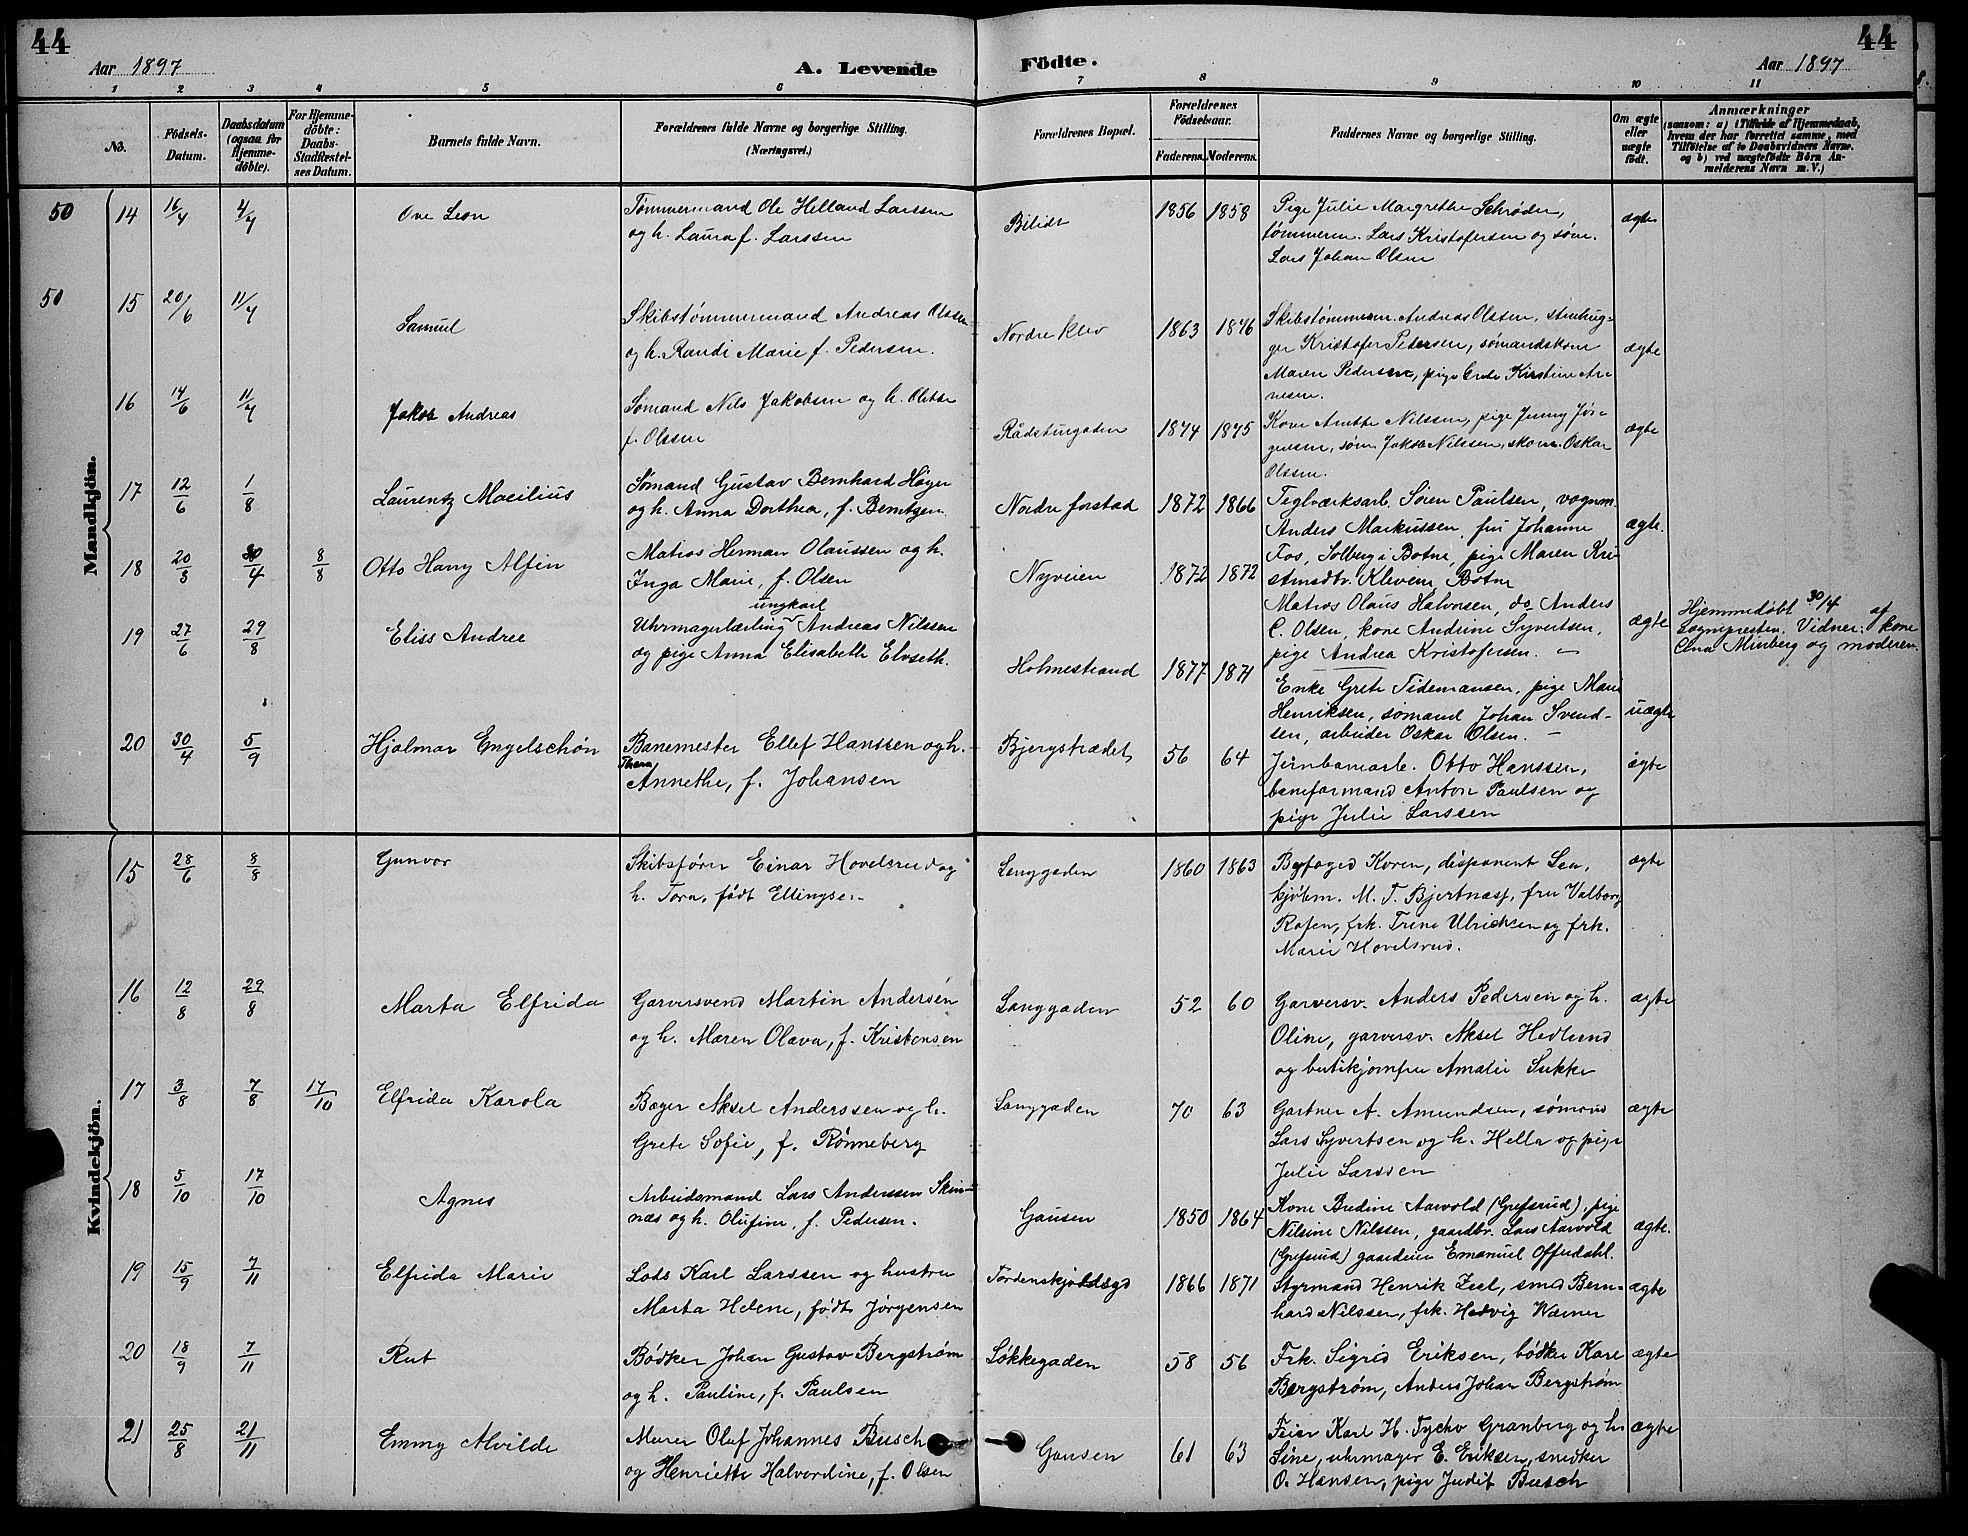 44
Aar 1897
A. Levende
1 2 3 4 5 6
No.
Födsels-
Datum.
Daabsdatum
(ogsaa for
Hjemme-
döbte).
For Hjemme-
döbte:
Daabs-
Stadfæstel-
ses Datum.
Barnets fulde Navn.
Forældrenes fulde Navne og borgerlige Stilling.
(Næringsvei.)
Födte.
44
Aar 1897
7 8 9 10 11
Forældrenes Bopæl.
Forældrenes
Födselsaar.
Faderens. Moderens.
Faddernes Navne og borgerlige Stilling.
Om ægte
eller
uægte
født.
Anmærkninger
(saasom: a) i Tilfælde af Hjemmedaab,
hvem der har forrettet samme, med
Tilföielse af to Daabsvidners Navne,
og b) ved uægtefödte Börn An-
melderens Navn m. V.)
Mandkjön.
50 14 16/4 4/7 Ove Leon
Tømmermand Ole Helland Larssen
og h. Laura f. Larssen
Bilidt 1856 1858
Pige Julie Margrethe Schrøder,
tømmerm. Lars Kristofersen og søm.
Lars Johan Olsen
ægte
50 15 20/6 11/7 Samuel
Skibstømmermand Andreas Olssen
og h. Randi Marie f. Pedersen.
Nordre Klev 1863 1876
Skibstømmerm. Andreas Olsten, stenhug-
ger Kristofer Petersen, sømandskone
Maren Pedersen, pige Grete Kirstine Ar-
nesen.
ægte
16 14/6 11/7 Jakob Andreas
Sømand Nils Jakobsen og h. Olette
f. Olssen
Rådstugaden 1874 1875
Kone Anette Nilssen, pige Jenny Jør-
gensen, søm. Jakob Nilssen, skom. Oskar
Olssen.
ægte
17 12/6 1/8 Laurentz Macilius
Sømand Gustav Bernhard Høyer
og h. Anna Dorthea, f. Berntzen
Nordre forstad 1872 1866
Teglværksarb. Søren Paulsen, vognm.
Anders Markussen, fru Johanne
Fos, Solberg i Botne, pige Maren Kri-
stensdtr. Klevene, Botne
ægte.
18 20/3 30/4 8/8 Otto Harry Alfin
Matros Herman Olaussen og h.
Inga Marie, f. Olsen
Nyveien 1872 1872
Matros Olaus Halvorsen, do Anders
C. Olsen, kone Andrine Syvertsen,
pige Andrea Kristofersen. –
ægte
Hjemmedøbt 30/4 af
sognepresten. Vidner: kone
Elna Minberg og moderen.
19 27/6 29/8 Eliss Andree
ungkarl
Uhrmagerlærling Andreas Nilssen
og pige Anna Elisabeth Elvseth.
Holmestrand 1877 1871
Enke Grete Tidemansen, pige Marie
Henriksen, sømand Johan Svend-
sen, arbeider Oskar Olsen. –
uægte
20 30/4 5/9 Hjalmar Engelschøn
Banemester Ellef Hanssen og h.
Thora
Annethe, f. Johansen
Bjergstrædet 56 64
Jernbanearb. Otto Hanssen,
baneformand Anton Paulsen og
pige Julie Larssen
ægte
Kvindekjön.
15 28/6 8/8 Gunvor
Skibsfører Einar Hovelsrud og
h. Tora, født Ellingsen
Langgaden 1860 1863
Byfoged Koren, disponent Lea,
kjøbm. M. T. Bjertnæs, fru Valborg
Rosen, frk. Trine Ulricksen og frk.
Marie Hovelsrud.
ægte
16 12/8 29/8 Marta Elfrida
Garversvend Martin Andersen
og h. Maren Olava, f. Kristensen
Langgaden 52 60
Garversv. Anders Pedersen og h.
Oline, garversv. Aksel Hedlund
og butikjomfru Amalie Sukke
ægte
17 3/8 7/8 17/10 Elfrida Karola
Bager Aksel Anderssen og h.
Grete Sofie, f. Rønneberg
Langgaden 70 63
Gartner A. Amundsen, sømand
Lars Syvertsen og h. Hella og pige
Julie Larssen
ægte
18 5/10 17/10 Agnes
Arbeidsmand Lars Anderssen Skin-
næs og h. Olufine, f. Pedersen.
Gausen 1850 1864
Kone Andine Aarvold (Grefsrud), pige
Nilsine Nilssen, gaardbr. Lars Aarvold
(Grefsrud) gaardeier Emanuel Offerdahl.
ægte.
19 15/9 7/11 Elfrida Marie
Lods Karl Larssen og hustru
Marta Helene, født Jørgensen
Tordenskjoldsgd 1866 1871
Styrmand Henrik Zeel, smed Bern-
hard Nilssen, frk. Hedvig Wærner
ægte
20 18/9 7/11 Rut
Bødker Johan Gustav Bergstrøm
og h. Pauline, f. Paulsen
Løkkegaden 58 56
Frk. Sigrid Eriksen, bødker Karl
Bergstrøm, Anders Johan Bergstrøm
ægte
21 25/8 21/11 Emmy Alvilde
Murer Oluf Johannes Busch
og Henriette Halvordine, f. Olsen
Gausen 61 63
Feier Karl H. Tycho Granberg og h.
Sine, uhrmager E. Eriksen, snedker
O. Hansen, pige Judit Busch
ægte